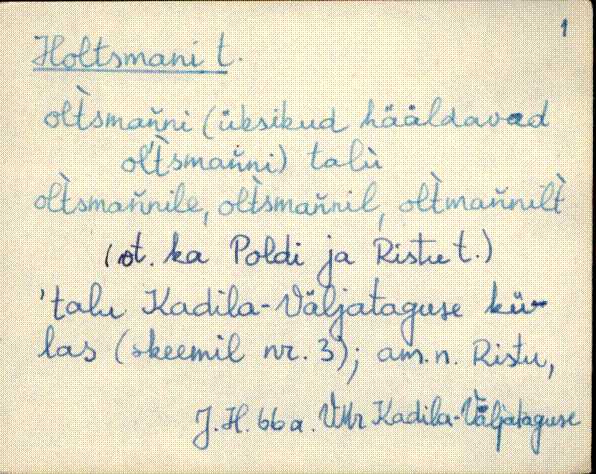 1
Holtsmani t.
olt̀smaňni (üksikud hääldavad
olt̀smaňni) talù
olt̀smaňnile, olt̀smaňnil, olt̀maňnilt̀
(vt. ka Poldi ja Ristu t.)
'talu Kadila-Väljataguse kü-
las (skeemil nr. 3); am.n. Ristu,
J.H. 66 a. VMr Kadila-Väljataguse